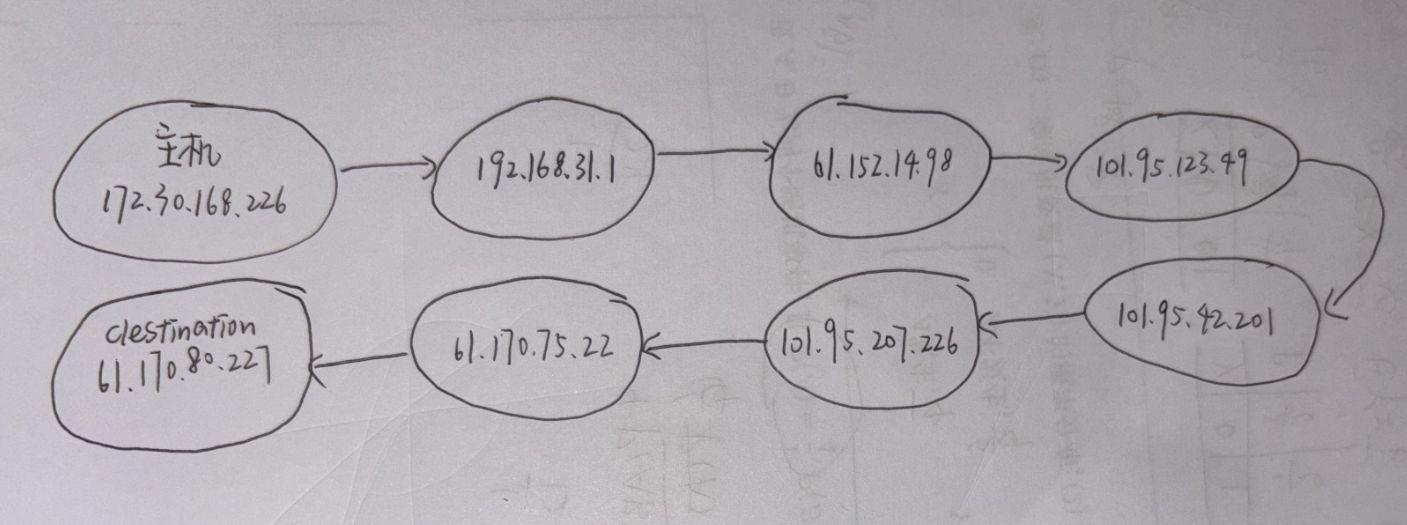 主机
172.30.168.226
192.168.31.1
61.152.14.98
101.95.123.49
101.95.42.201
101.95.207.226
61.170.75.22
destination
61.170.80.227